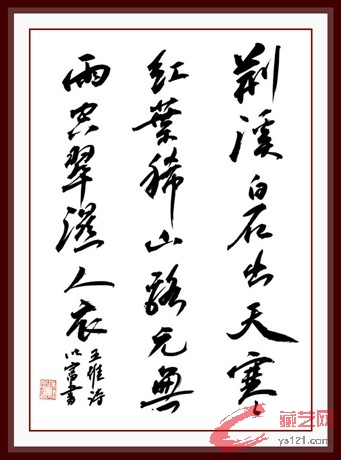 荆溪白石出天寒
紅葉稀山路元無
雨空翠濕人衣
王維詩
書
藏艺网
ys121.com